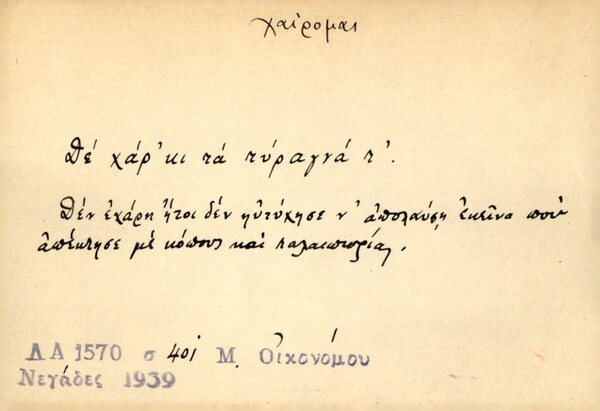 χαίρομαι
Δέ χάρ'κι τά τύραγνά τ'.
Δέν ἐχάρη ἤτοι δέν ηὐτύχησε ν' ἀπολαύσῃ ἐκεῖνα πού
ἀπέκτησε μέ κόπους καί ταλαιπωρίας.
ΛΑ 1570 σ 401 Μ. Οἰκονόμου
Νεγάδες 1939